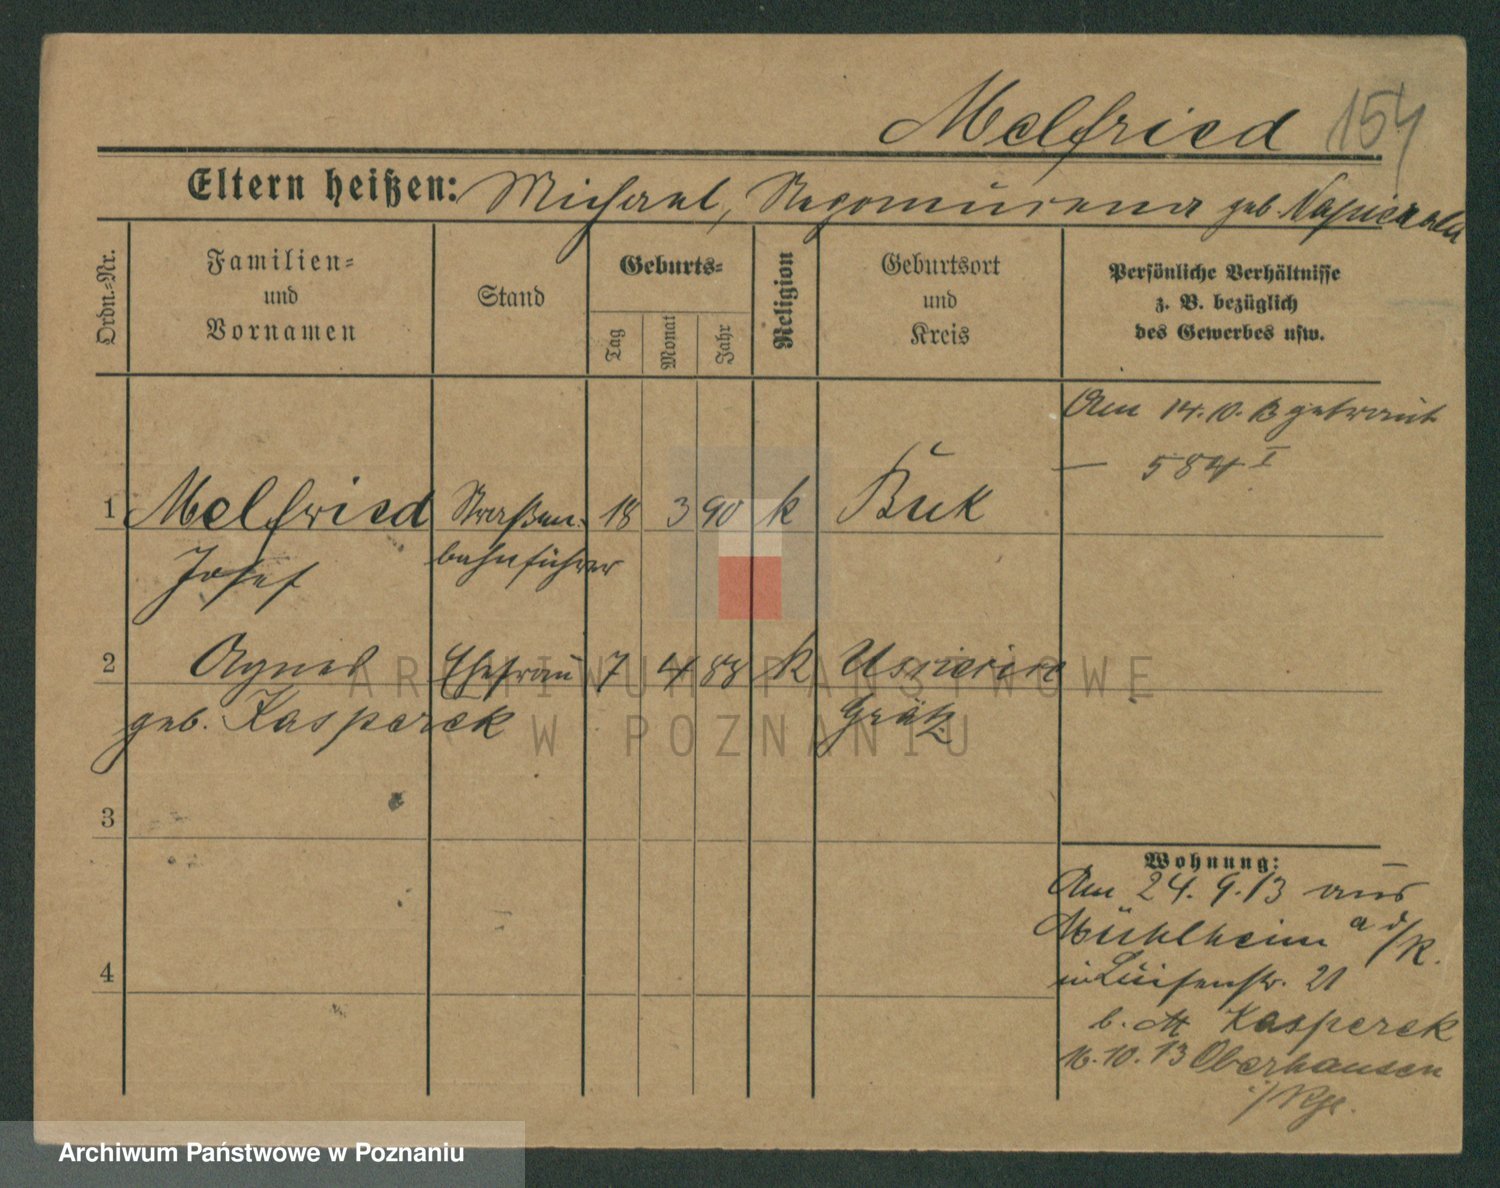 Melfried 154
Eltern heißen: Michael, Nepomucena geb. Napierala
Ordn.-Nr.
Familien- und Vornamen
Stand
Geburts-
Tag
Monat
Jahr
Religion
Geburtsort und Kreis
Persönliche Verhältnisse
z. B. bezüglich
des Gewerbes usw.
Am 14.10.13 getraut
— 584 I
1 Melfried Straßen- 18 3 90 k Buk
Josef bahnführer
2 Agnes Ehefrau 7 4 88 k
geb. Kasperek Grätz
3
4
Wohnung:
Am 24.9.13 aus
Mühlheim a d/R.
in Luisenstr. 21
b. Kasperek
16.10.13 Oberhausen
ARCHIWUM PAŃSTWOWE
W POZNANIU
Archiwum Państwowe w Poznaniu